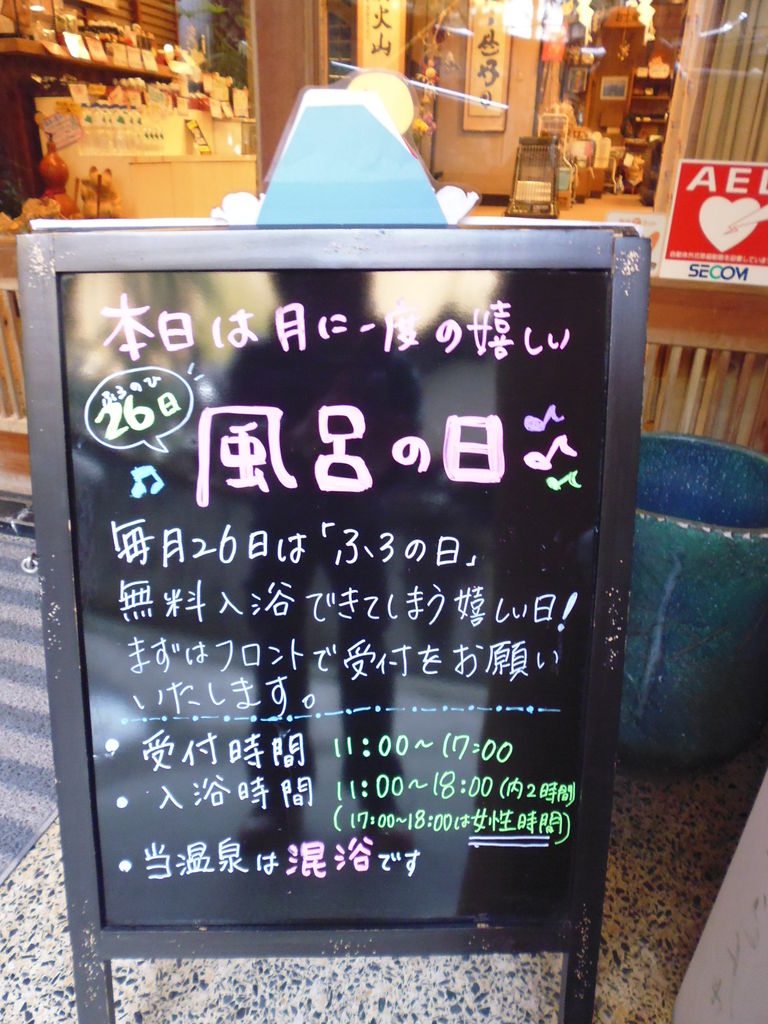 火山
AED
自動体外式除細動器を設置しています
SECOM
本日は月に一度の嬉しい
ふろのひ
26日
風呂の日
毎月26日は「ふろの日」
無料入浴できてしまう嬉しい日!
まずはフロントで受付をお願い
いたします。
• 受付時間 11:00~17:00
• 入浴時間 11:00~18:00(内2時間)
(17:00~18:00は女性時間)
• 当温泉は混浴です